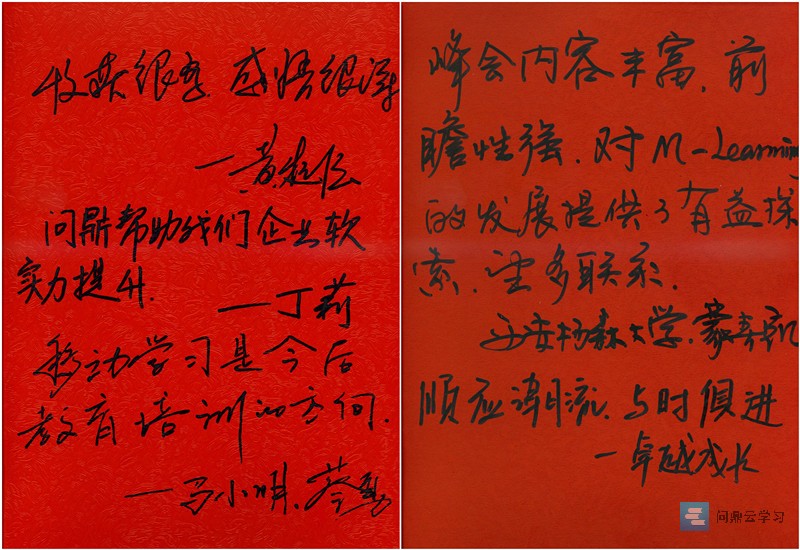 收获很多，感悟很深
一黄
问鼎帮助我们企业软
实力提升.
一丁莉
移动学习是今后
教育培训的方向.
一马小明、蔡勇
峰会内容丰富，前
瞻性强，对M-Learning
的发展提供了有益探
索，望多联系.
西安杨森大学，蒙
顺应潮流，与时俱进
一卓越成长
问鼎云学习